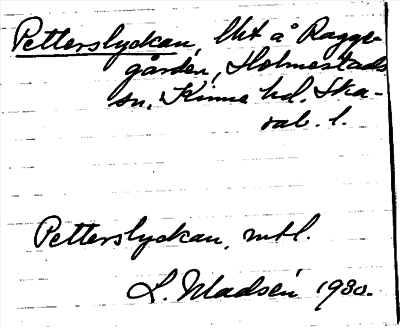 Petterslyckan, lht å Ragge-
gården, Holmestads
sn, Kinne hd. Ska-
rab. l.
Petterslyckan, mtl.
L. Madsén 1930.